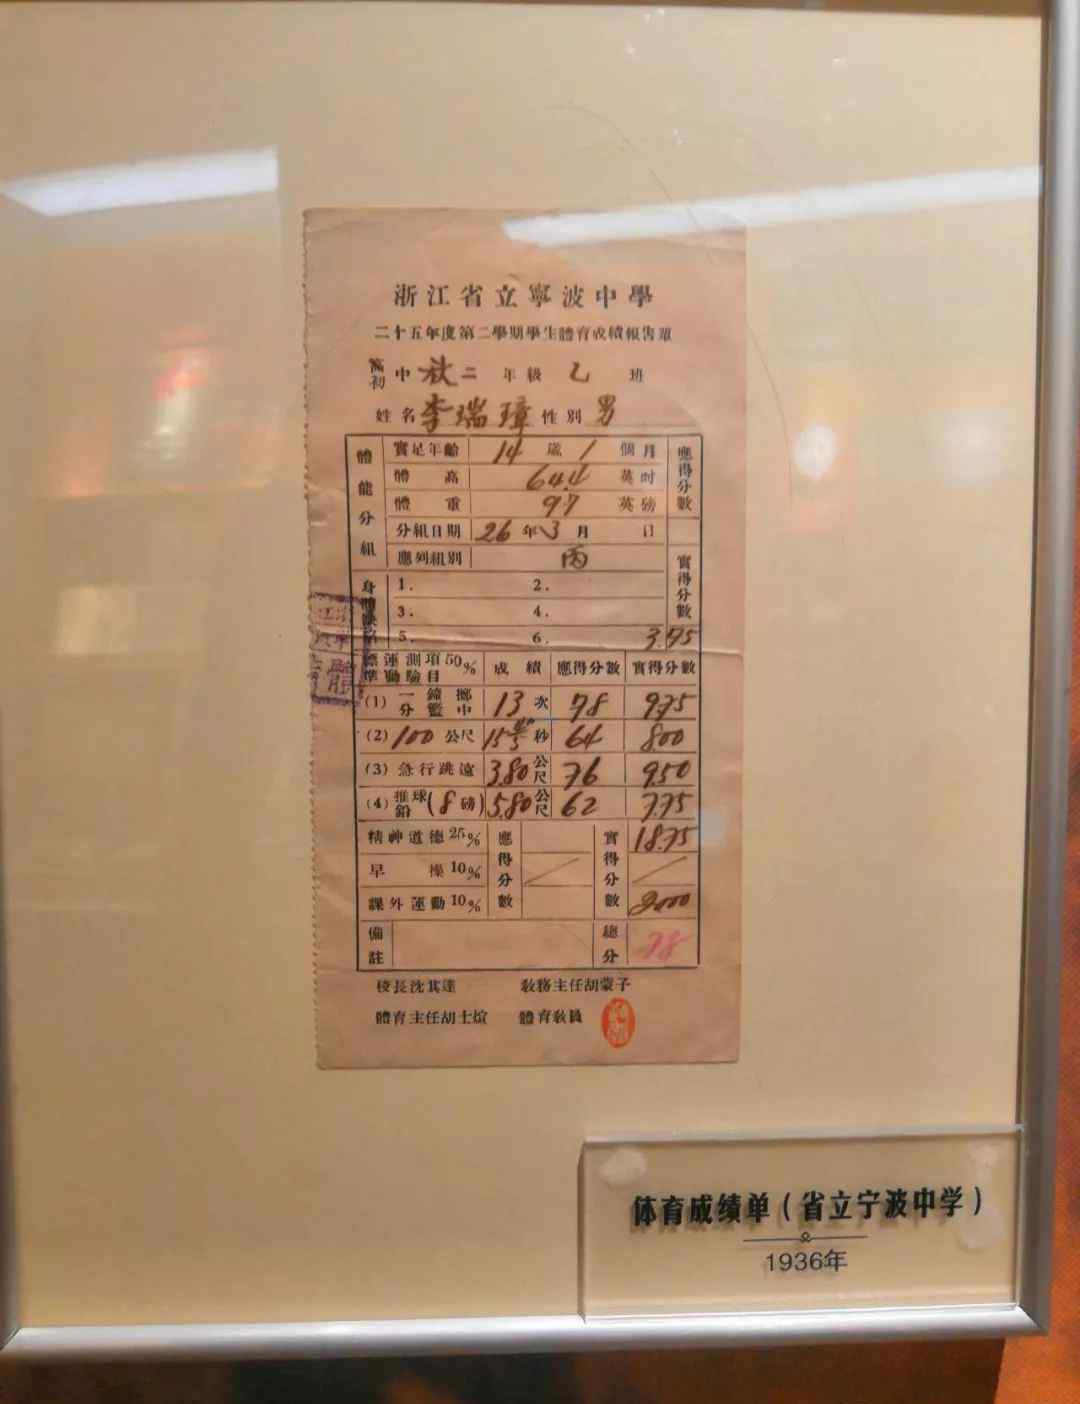 浙江省立寧波中學
二十五年度第二學期學生體育成績報告單
高初中 秋二 年級 乙 班
姓名 李瑞璋 性別 男
體能分組
實足年齡 14 歲 1 個月
應得分數
體高 64.4 英吋
體重 97 英磅
分組日期 26 年 3 月 日
應列組別 丙
實得分數
身體缺陷
1. 2.
3. 4.
5. 6. 3.75
標準運動測驗項目50% 成績 應得分數 實得分數
(1) 一分鐘擲籃中 13 次 78 9.75
(2) 100 公尺 15 秒 64 8.00
(3) 急行跳遠 3.80 公尺 76 9.50
(4) 推鉛球(8磅) 5.80 公尺 62 7.75
精神道德25% 應得分數 實得分數 18.75
早操10%
課外運動10%
備註 總分 78
校長沈其達 教務主任胡蒙子
體育主任胡士煊 體育教員
體
体育成绩单(省立宁波中学)
1936年